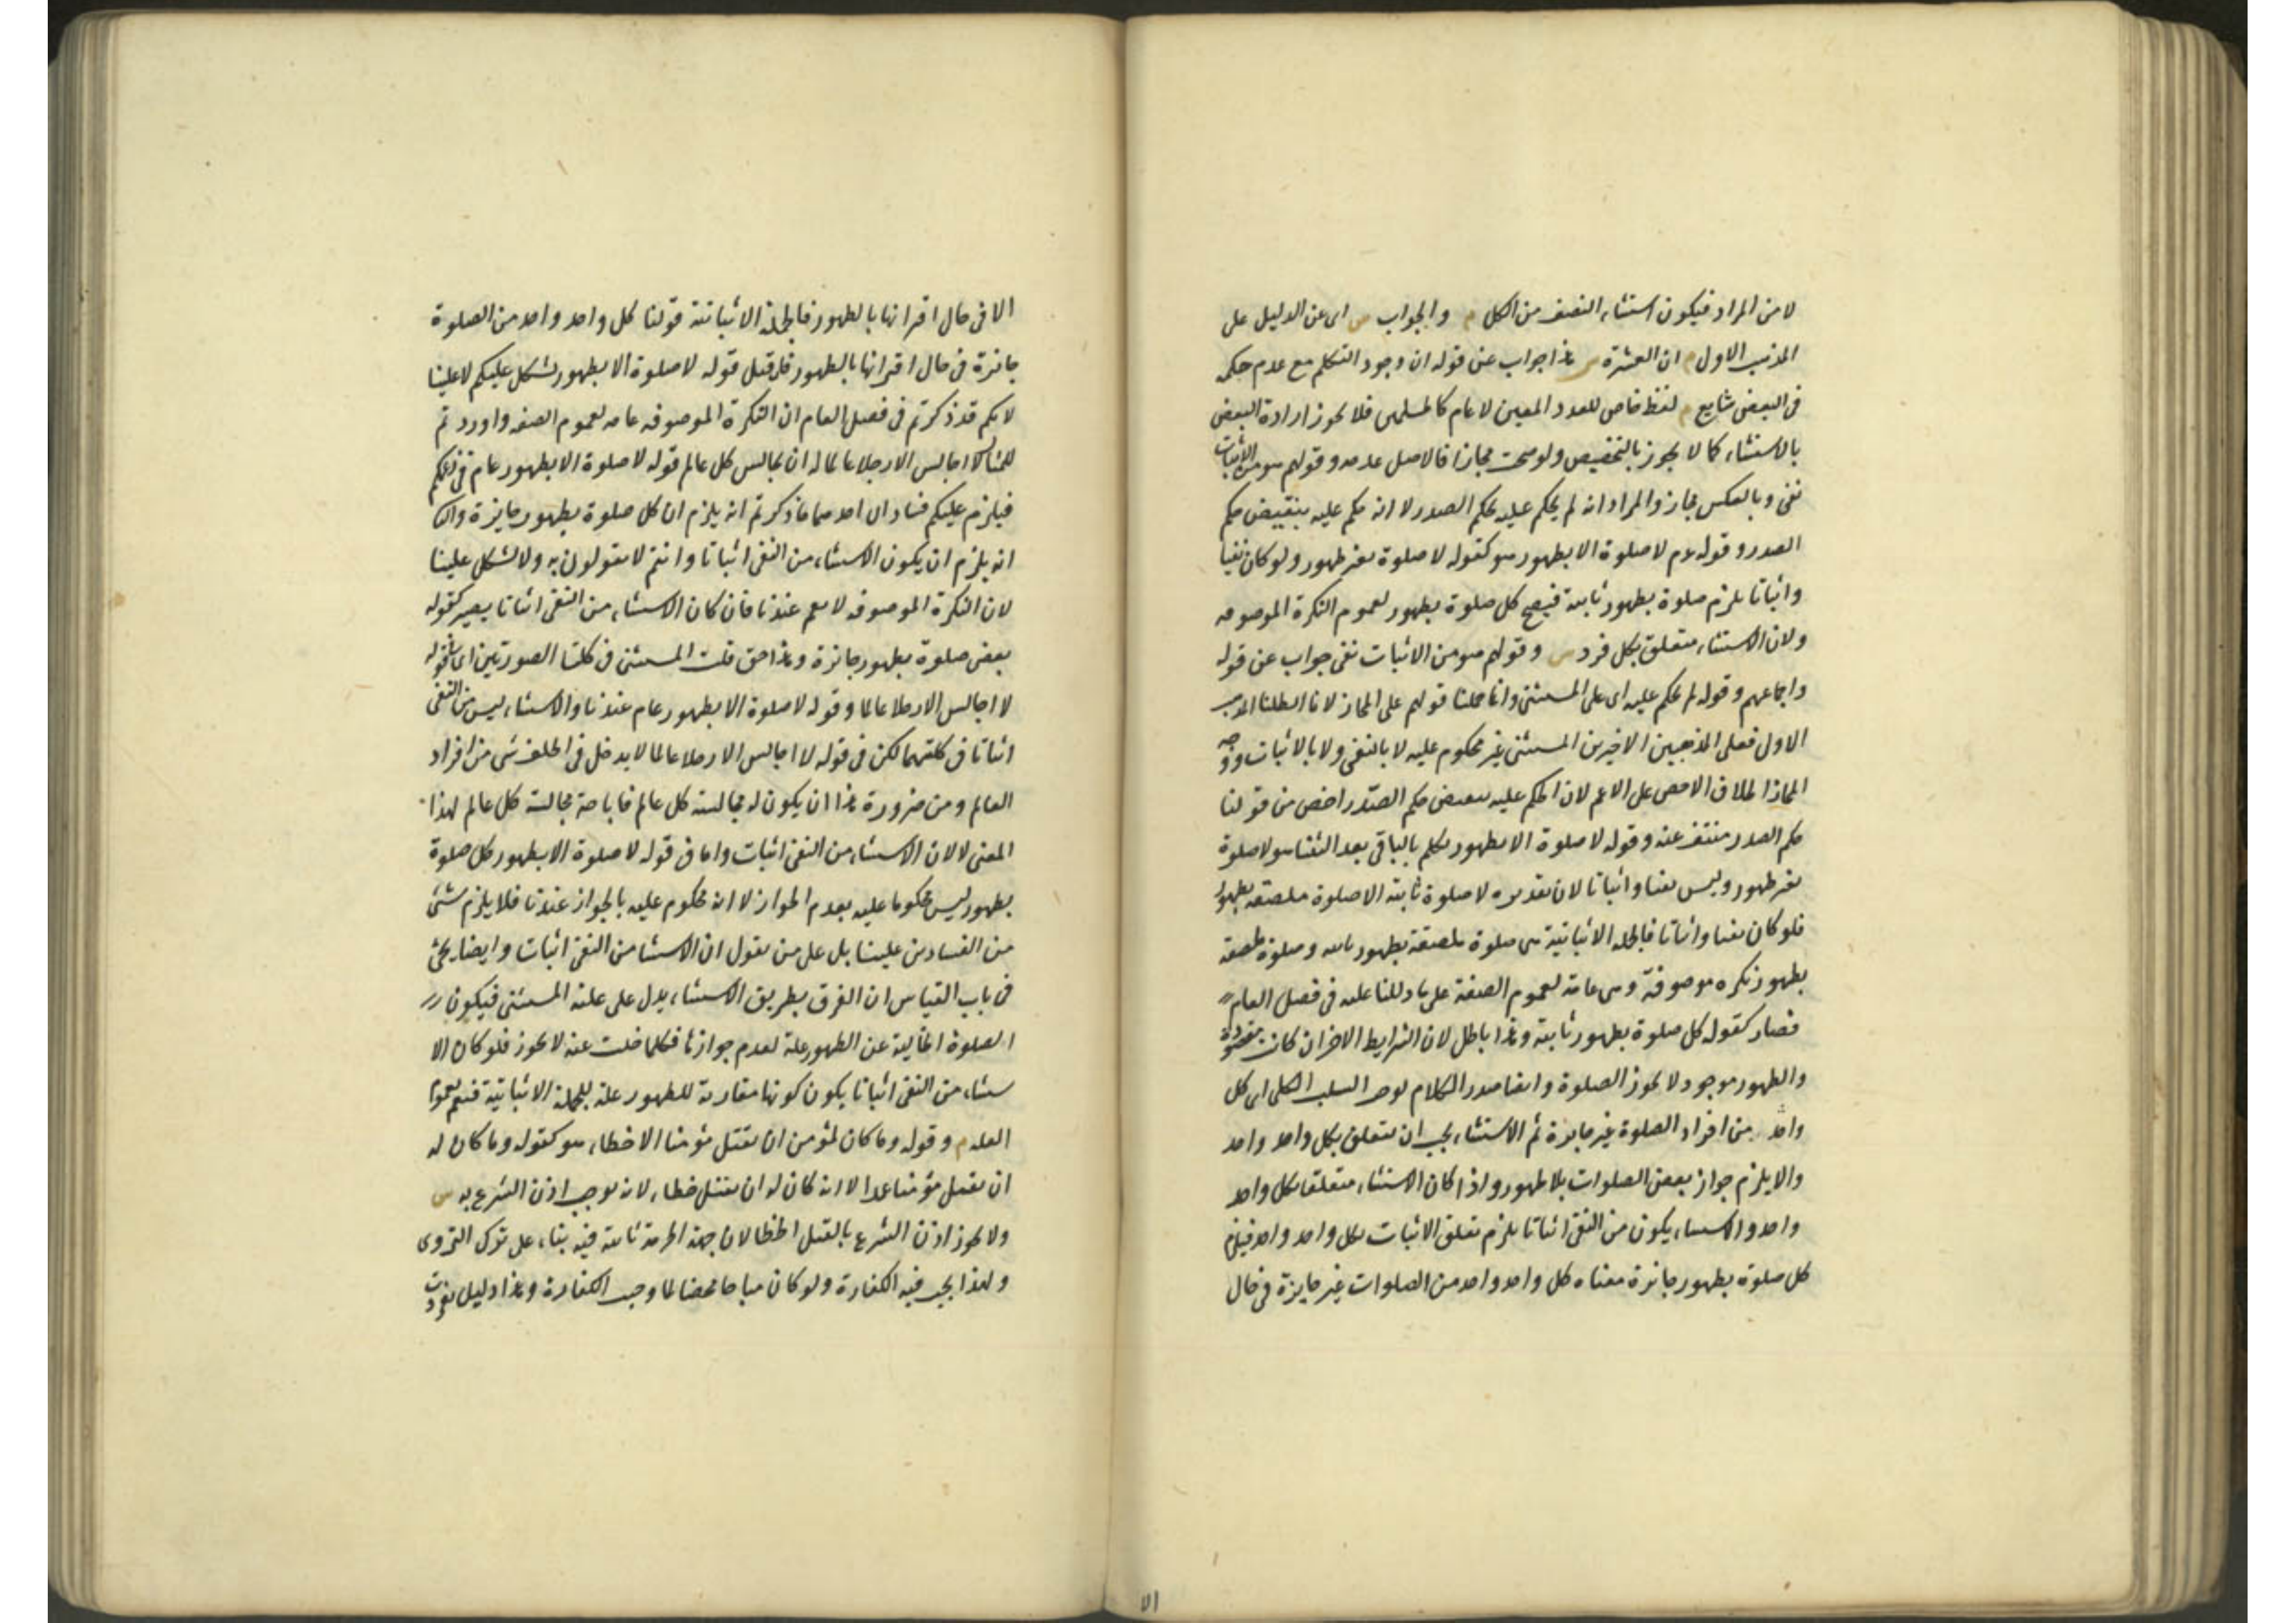 لا من المراد فيكون استثناء النصف من الكل م والجواب ش اى عن الدليل على
المذهب الاول م ان العشرة ش هذا جواب عن قوله ان وجود التكلم مع عدم حكمه
فى البعض شايع م لفظ خاص للعدد المعين لا عام كالمسلمين فلا يجوز ارادة البعض
بالاستثناء كما لا يجوز بالتخصيص ولو صحت مجازا فالاصل عدمه وقولهم هو من الاثبات
نفى وبالعكس مجاز والمراد انه لم يحكم عليه بحكم الصدر لا انه حكم عليه بنقيض حكم
الصدر وقوله عم لا صلوة الا بطهور هو كقوله لا صلوة بغير طهور ولو كان نفيا
واثباتا يلزم صلوة بطهور ثابتة فيصح كل صلوة بطهور لعموم النكرة الموصوفه
ولان الاستثناء متعلق بكل فرد ش وقولهم هو من الاثبات نفى جواب عن قوله
واجماعهم وقوله لم يحكم عليه اى على المستثنى وانما حملنا قولهم على المجاز لانا ابطلنا المذهب
الاول فعلى المذهبين الاخيرين المستثنى غير محكوم عليه لا بالنفى ولا بالاثبات ووجه
المجاز اطلاق الاخص على الاعم لان الحكم عليه بنقيض حكم الصدر اخص من قولنا
حكم الصدر منتف عنه وقوله لا صلوة الا بطهور تكلم بالباقى بعد الثنيا هو لا صلوة
بغير طهور وليس نفيا واثباتا لان تقديره لا صلوة ثابتة الا صلوة ملصقة بطهور
فلو كان نفيا واثباتا فالجملة الاثباتية هى صلوة ملصقة بطهور ثابتة وصلوة ملصقة
بطهور نكره موصوفة وهى عامة لعموم الصفة على ما دللنا عليه فى فصل العام
فصار كقوله كل صلوة بطهور ثابتة وهذا باطل لان الشرايط الاخر ان كانت مفقودة
والطهور موجود لا يجوز الصلوة وايضا صدر الكلام يوجب السلب الكلى اى كل
واحد من افراد الصلوة غير جايزة ثم الاستثناء يجب ان يتعلق بكل واحد واحد
والا يلزم جواز بعض الصلوات بلا طهور واذا كان الاستثناء متعلقا بكل واحد
واحد والاستثناء يكون من النفى اثباتا يلزم تعلق الاثبات بكل واحد واحد فيلزم
كل صلوة بطهور جائزة معناه كل واحد واحد من الصلوات غير جايزة فى حال
الا
الا فى حال اقترانها بالطهور فالجملة الاثباتية قولنا كل واحد واحد من الصلوة
جائزة فى حال اقترانها بالطهور فان قيل قوله لا صلوة الا بطهور يشكل عليكم لا علينا
لانكم قد ذكرتم فى فصل العام ان النكرة الموصوفه عامه لعموم الصفه واوردتم
للمثال لا اجالس الا رجلا عالما له ان يجالس كل عالم قوله لا صلوة الا بطهور عام فى زعمكم
فيلزم عليكم فسادان احدهما ما ذكرتم انه يلزم ان كل صلوة بطهور جايزة والثانى
انه يلزم ان يكون الاستثناء من النفى اثباتا وانتم لا تقولون به ولا يشكل علينا
لان النكرة الموصوفه لا تعم عندنا فان كان الاستثناء من النفى اثباتا يصير كقوله
بعض صلوة بطهور جائزة وهذا حق قلت المستثنى فى كلتا الصورتين اى قوله
لا اجالس الا رجلا عالما وقوله لا صلوة الا بطهور عام عندنا والاستثناء ليس من النفى
اثباتا فى كلتيهما لكن فى قوله لا اجالس الا رجلا عالما لا يدخل فى الحلف شى من افراد
العالم ومن ضرورة هذا ان يكون له مجالسة كل عالم فاباحة مجالسة كل عالم لهذا
المعنى لا لان الاستثناء من النفى اثبات واما فى قوله لا صلوة الا بطهور كل صلوة
بطهور ليس محكوما عليه بعدم الجواز لا انه محكوم عليه بالجواز عندنا فلا يلزم شئ
من الفسادين علينا بل على من يقول ان الاستثنا من النفى اثبات وايضا يجئ
فى باب القياس ان الفرق بطريق الاستثناء يدل على علية المستثنى فيكون
الصلوة الخالية عن الطهور علة لعدم جوازها فكلما خلت عنه لا يجوز فلو كان الا
ستثناء من النفى اثباتا يكون كونها مقارنة للطهور علة للجملة الاثباتية فتعم لعموم
العلة م وقوله وما كان لمؤمن ان يقتل مؤمنا الا خطاء هو كقوله وما كان له
ان يقتل مؤمنا عمدا لا انه كان له ان يقتل خطاء لانه يوجب اذن الشرع به ش
ولا يجوز اذن الشرع بالقتل الخطا لان جهة الحرمة ثابتة فيه بناء على ترك التروى
ولهذا يجب فيه الكفارة ولو كان مباحا محضا لما وجب الكفارة وهذا دليل تفردت